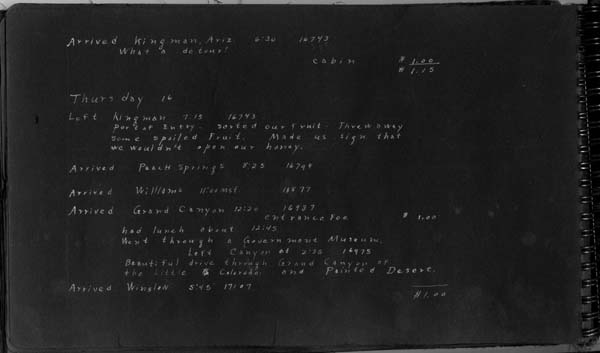 Arrived Kingman, Ariz. 6:30 16743
What a detour!
cabin $ 1.00
$ 1.15
Thursday 16
Left Kingman 7:15 16743
Port of Entry - sorted our fruit - Threw away
some spoiled fruit. Made us sign that
we wouldn't open our honey.
Arrived Peach Springs 8:25
Arrived Williams
Arrived Grand Canyon 12:20 16937
entrance fee $ 1.00
had lunch about 12:45
Went through a Government Museum.
Left Canyon at 2:35 16975
Beautiful drive through Grand Canyon of
the Little Colorado and Painted Desert.
Arrived Winslow 5:45 17107
$1.00